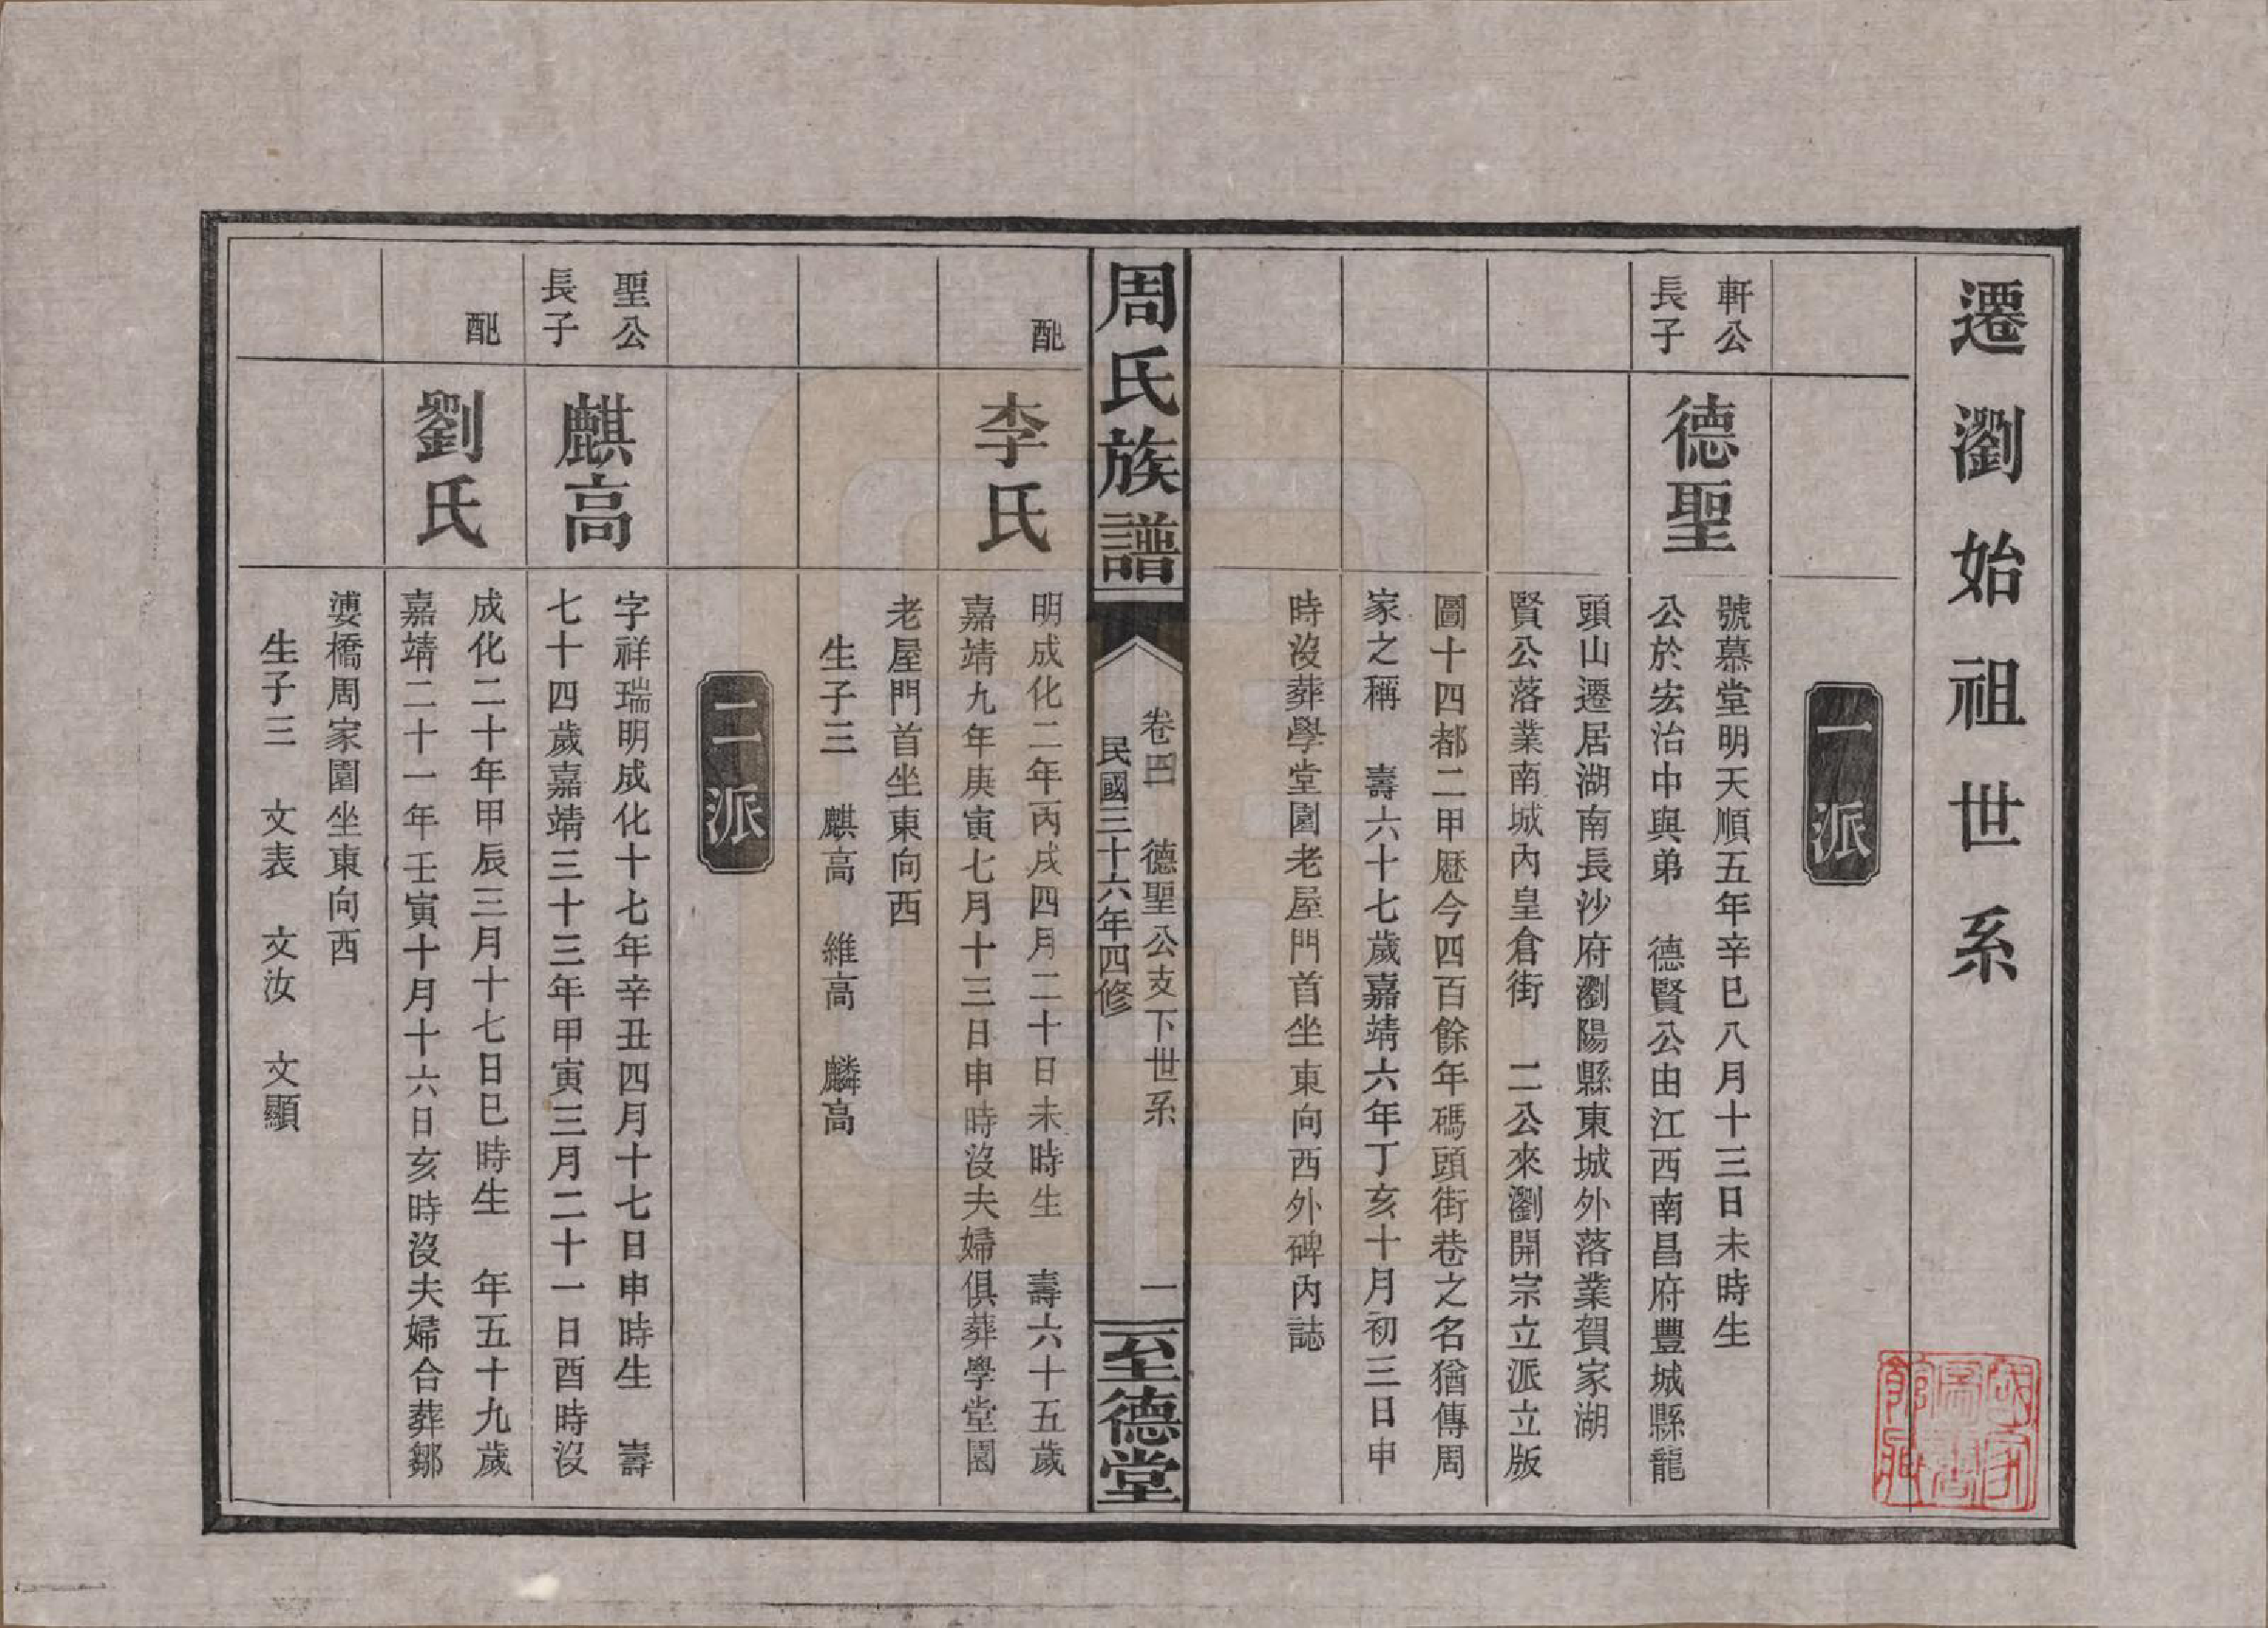 遷瀏始祖世系
一派
軒公
長子
德聖
號慕堂明天順五年辛巳八月十三日未時生
公於宏治中與弟　德賢公由江西南昌府豐城縣龍
頭山遷居湖南長沙府瀏陽縣東城外落業賀家湖
賢公落業南城內皇倉街　二公來瀏開宗立派立版
圖十四都二甲歷今四百餘年碼頭街巷之名猶傳周
家之稱　壽六十七歲嘉靖六年丁亥十月初三日申
時沒葬學堂園老屋門首坐東向西外碑內誌
周氏族譜
卷四　德聖公支下世系　一
民國三十六年四修
至德堂
配
李氏
明成化二年丙戌四月二十日未時生　壽六十五歲
嘉靖九年庚寅七月十三日申時沒夫婦俱葬學堂園
老屋門首坐東向西
生子三　麒高　維高　麟高
二派
聖公
長子
麒高
字祥瑞明成化十七年辛丑四月十七日申時生　壽
七十四歲嘉靖三十三年甲寅三月二十一日酉時沒
配
劉氏
成化二十年甲辰三月十七日巳時生　年五十九歲
嘉靖二十一年壬寅十月十六日亥時沒夫婦合葬鄒
婆橋周家園坐東向西
生子三　文表　文汝　文顯